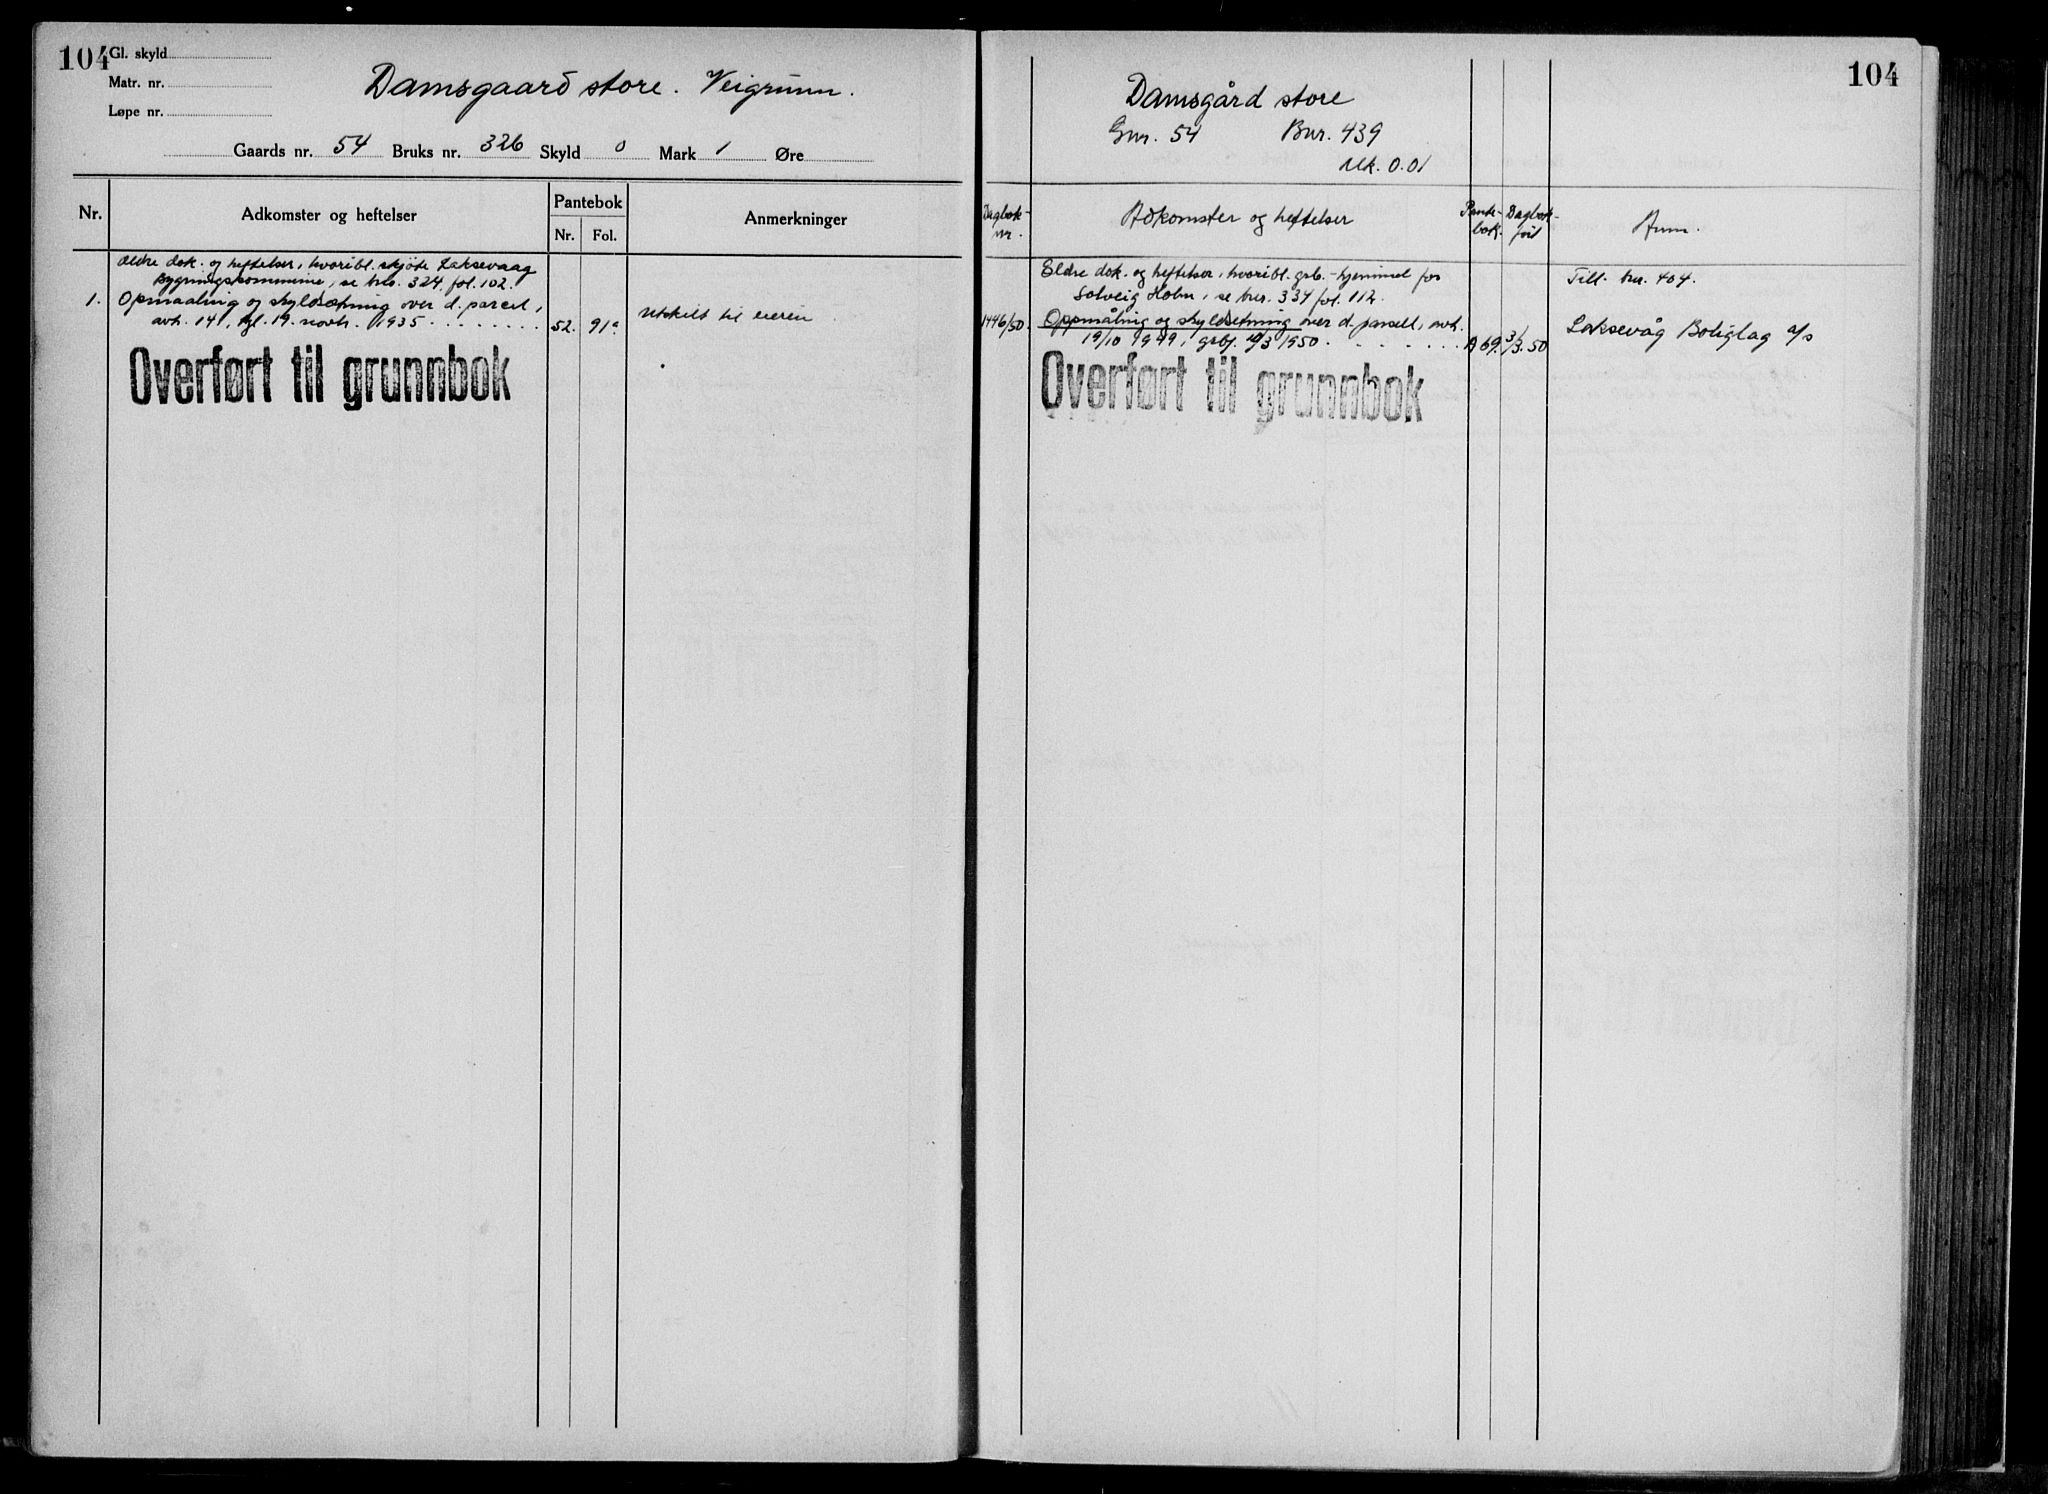 104
Gl. skyld
Matr. nr.
Løpe nr.
Damsgaard store. Veigrunn.
Gaards nr. 54 Bruks nr. 326 Skyld 0 Mark 1 Øre
Nr. Adkomster og heftelser Pantebok Anmerkninger
Nr. Fol.
Ældre dok. og heftelser, hvoribl. skjøte Laksevaag
Bygningskommune, se brs. 324 fol. 102.
1. Opmaaling og skyldsætning over d. parcel,
avh. 14, tgl. 19. novbr. 1935 52. 91a
Utskilt til eieren
Overført til grunnbok
104
Damsgård store
Gnr. 54 Bnr. 439
Mk. 0.01
Dagbok-
nr. Adkomster og heftelser Pante-
bok. Dagbok-
ført Anm.
Eldre dok. og heftelser, hvoribl. grb.-hjemmel for
Solveig Holm, se bnr. 334 fol. 112.
Till. bnr. 404.
1446/50. Oppmåling og skyldsetning over d. parsell, avh.
19/10 1949, grbf. 1950 A 69. 3/3.50
Laksevåg Boliglag a/s
Overført til grunnbok